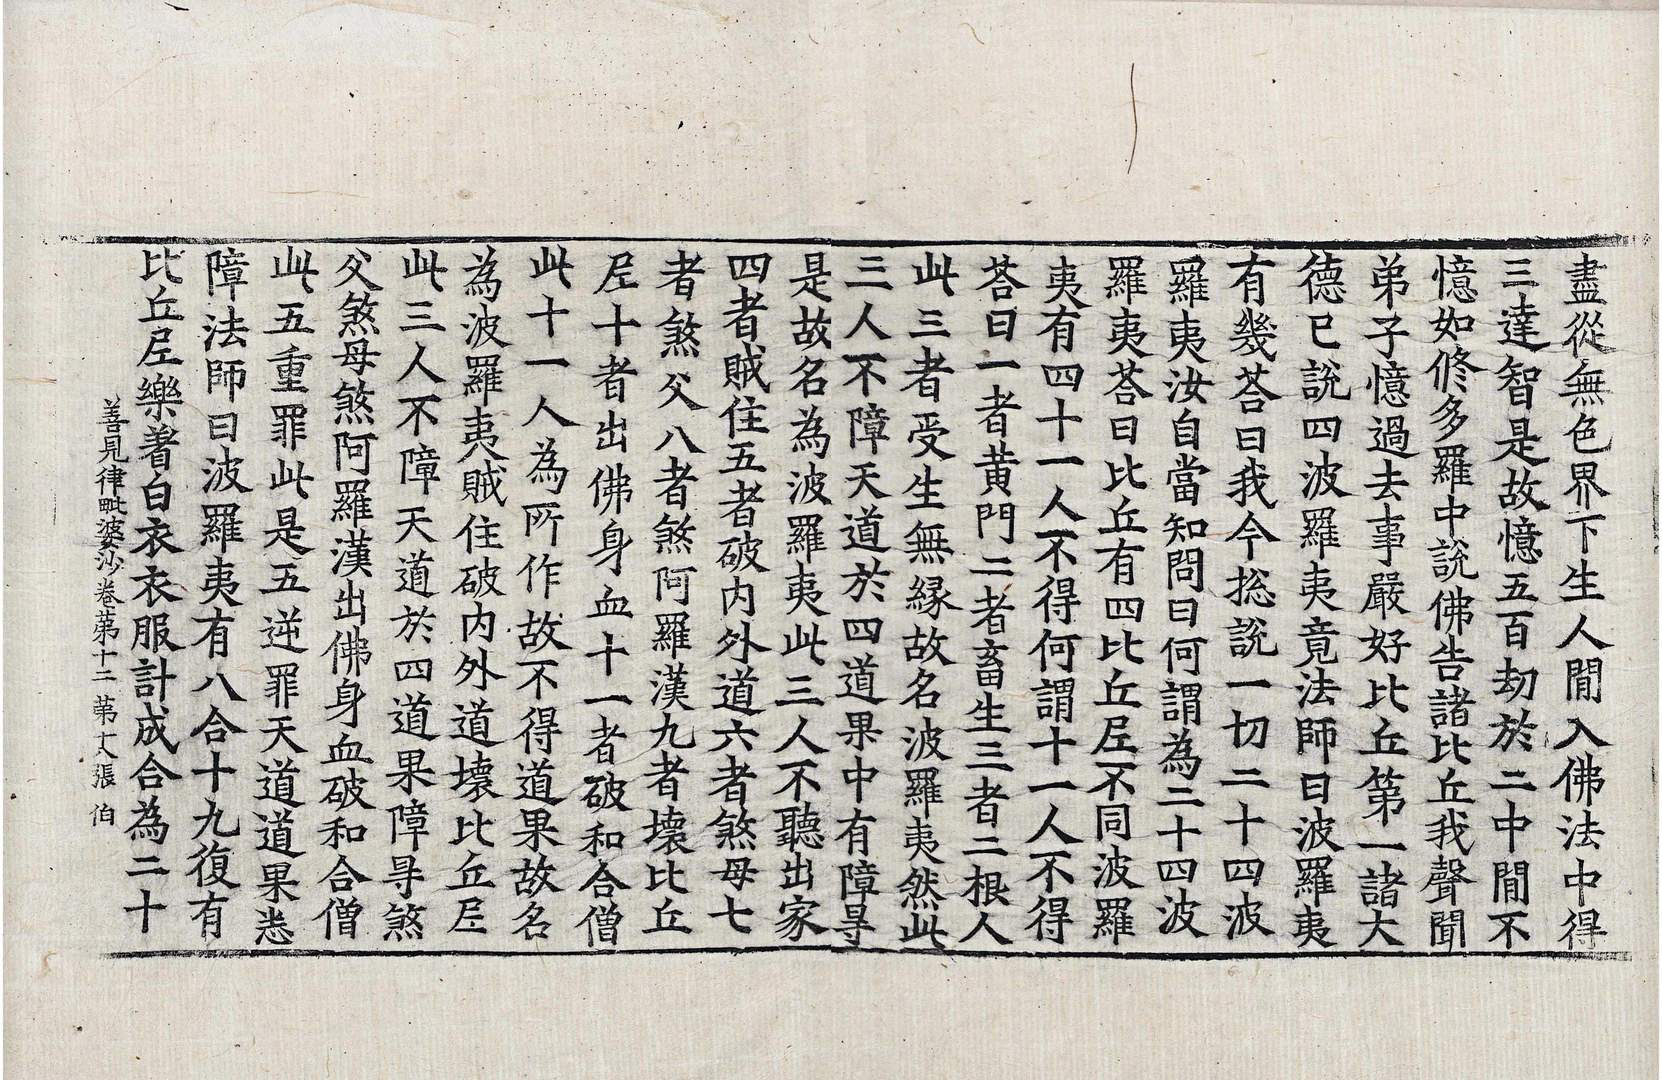 盡從無色界下生人閒入佛法中得
三達智是故憶五百劫於二中閒不
憶如修多羅中說佛告諸比丘我聲聞
弟子憶過去事嚴好比丘第一諸大
德已說四波羅夷竟法師曰波羅夷
有幾荅曰我今捴說一切二十四波
羅夷汝自當知問曰何謂為二十四波
羅夷荅曰比丘有四比丘尼不同波羅
夷有四十一人不得何謂十一人不得
荅曰一者黃門二者畜生三者二根人
此三者受生無緣故名波羅夷然此
三人不障天道於四道果中有障㝵
是故名為波羅夷此三人不聽出家
四者賊住五者破內外道六者煞母七
者煞父八者煞阿羅漢九者壞比丘
尼十者出佛身血十一者破和合僧
此十一人為所作故不得道果故名
為波羅夷賊住破內外道壞比丘尼
此三人不障天道於四道果障㝵煞
父煞母煞阿羅漢出佛身血破和合僧
此五重罪此是五逆罪天道道果悉
障法師曰波羅夷有八合十九復有
比丘尼樂著白衣衣服計成合為二十
善見律毗婆沙卷苐十二 苐 張 伯